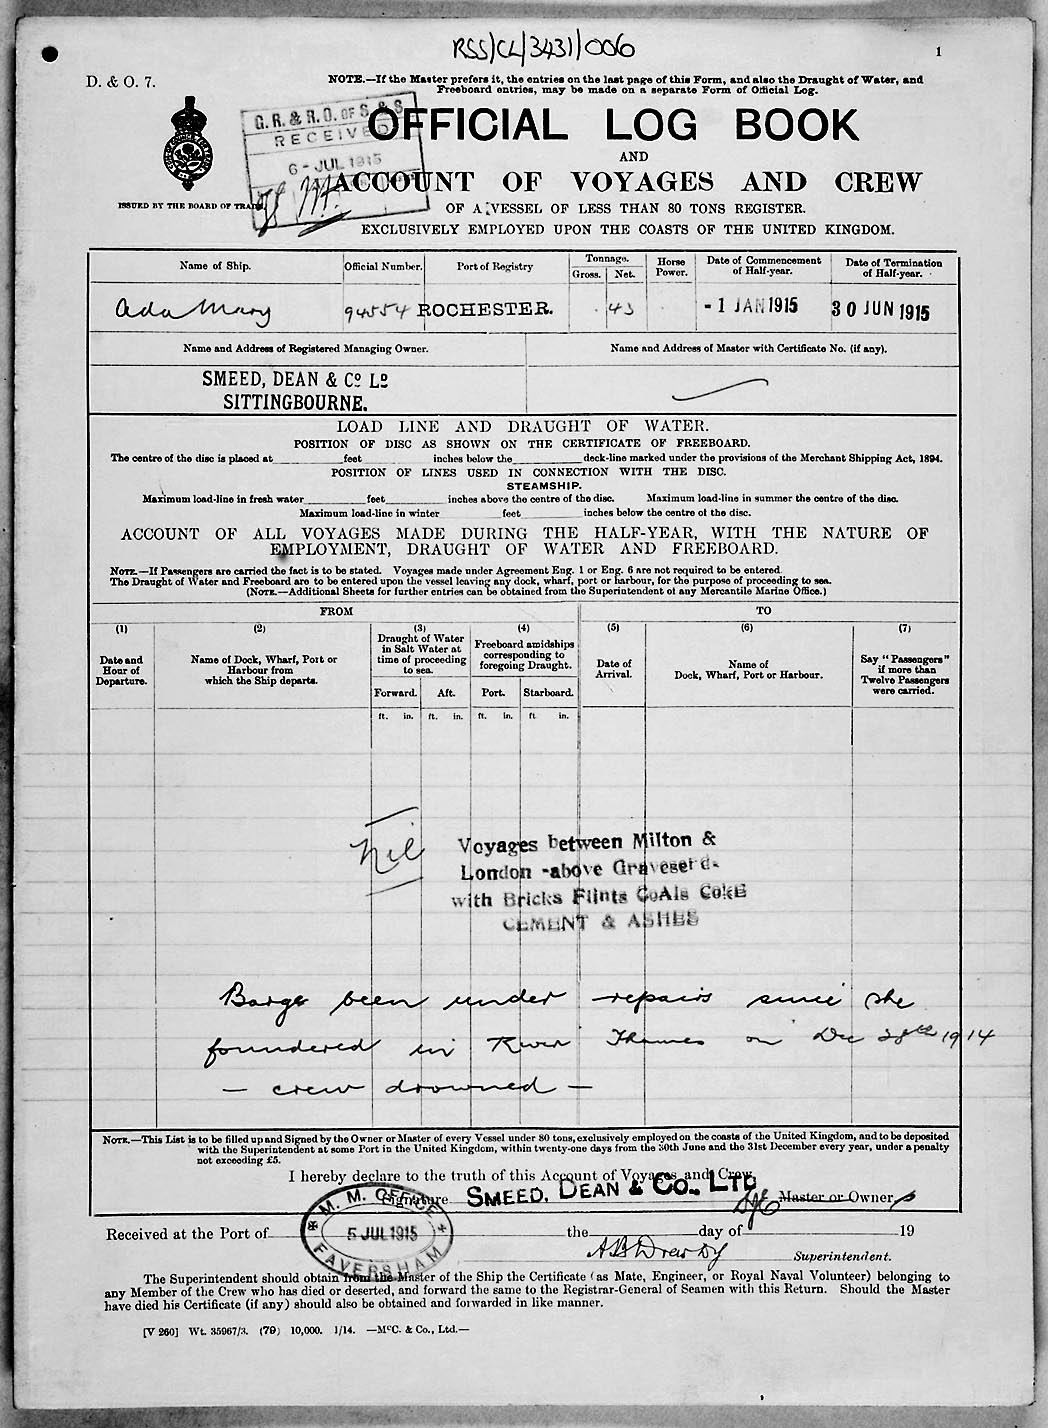 RSS/CL/3431/006
1
D. & O. 7.
NOTE.—If the Master prefers it, the entries on the last page of this Form, and also the Draught of Water, and
Freeboard entries, may be made on a separate Form of Official Log.
G. R. & R. O. OF S & S
RECEIVED
6 - JUL 1915
OFFICIAL LOG BOOK
AND
ACCOUNT OF VOYAGES AND CREW
ISSUED BY THE BOARD OF TRADE
OF A VESSEL OF LESS THAN 80 TONS REGISTER.
EXCLUSIVELY EMPLOYED UPON THE COASTS OF THE UNITED KINGDOM.
Name of Ship. Official Number. Port of Registry Tonnage. Gross. Net. Horse Power. Date of Commencement of Half-year. Date of Termination of Half-year.
Ada Mary 94554 ROCHESTER. 43 - 1 JAN 1915 30 JUN 1915
Name and Address of Registered Managing Owner. Name and Address of Master with Certificate No. (if any).
SMEED, DEAN & Co Ld
SITTINGBOURNE.
LOAD LINE AND DRAUGHT OF WATER.
POSITION OF DISC AS SHOWN ON THE CERTIFICATE OF FREEBOARD.
The centre of the disc is placed at feet inches below the deck-line marked under the provisions of the Merchant Shipping Act, 1894.
POSITION OF LINES USED IN CONNECTION WITH THE DISC.
STEAMSHIP.
Maximum load-line in fresh water feet inches above the centre of the disc. Maximum load-line in summer the centre of the disc.
Maximum load-line in winter feet inches below the centre of the disc.
ACCOUNT OF ALL VOYAGES MADE DURING THE HALF-YEAR, WITH THE NATURE OF
EMPLOYMENT, DRAUGHT OF WATER AND FREEBOARD.
NOTE.—If Passengers are carried the fact is to be stated. Voyages made under Agreement Eng. 1 or Eng. 6 are not required to be entered
The Draught of Water and Freeboard are to be entered upon the vessel leaving any dock, wharf, port or harbour, for the purpose of proceeding to sea.
(NOTE.—Additional Sheets for further entries can be obtained from the Superintendent of any Mercantile Marine Office.)
FROM TO
(1) (2) (3) (4) (5) (6) (7)
Date and Hour of Departure.
Name of Dock, Wharf, Port or Harbour from which the Ship departs.
Draught of Water in Salt Water at time of proceeding to sea.
Freeboard amidships corresponding to foregoing Draught.
Date of Arrival.
Name of Dock, Wharf, Port or Harbour.
Say "Passengers" if more than Twelve Passengers were carried.
Forward. Aft. Port. Starboard.
ft. in. ft. in. ft. in. ft in.
Nil
Voyages between Milton &
London -above Gravesend-
with Bricks Flints CoAls CoKE
CEMENT & ASHES
Barge been under repairs since she
foundered in River Thames on Dec 28th 1914
— crew drowned —
NOTE.—This List is to be filled up and Signed by the Owner or Master of every Vessel under 80 tons, exclusively employed on the coasts of the United Kingdom, and to be deposited
with the Superintendent at some Port in the United Kingdom, within twenty-one days from the 30th June and the 31st December every year, under a penalty
not exceeding £5.
I hereby declare to the truth of this Account of Voyages and Crew
Signature SMEED, DEAN & Co., LTD Master or Owner
M. M. OFFICE
5 JUL 1915
FAVERSHAM
Received at the Port of the day of 19
Superintendent.
The Superintendent should obtain from the Master of the Ship the Certificate (as Mate, Engineer, or Royal Naval Volunteer) belonging to
any Member of the Crew who has died or deserted, and forward the same to the Registrar-General of Seamen with this Return. Should the Master
have died his Certificate (if any) should also be obtained and forwarded in like manner.
[V 260] Wt. 35967/3. (79) 10,000. 1/14. —McC. & Co., Ltd.—